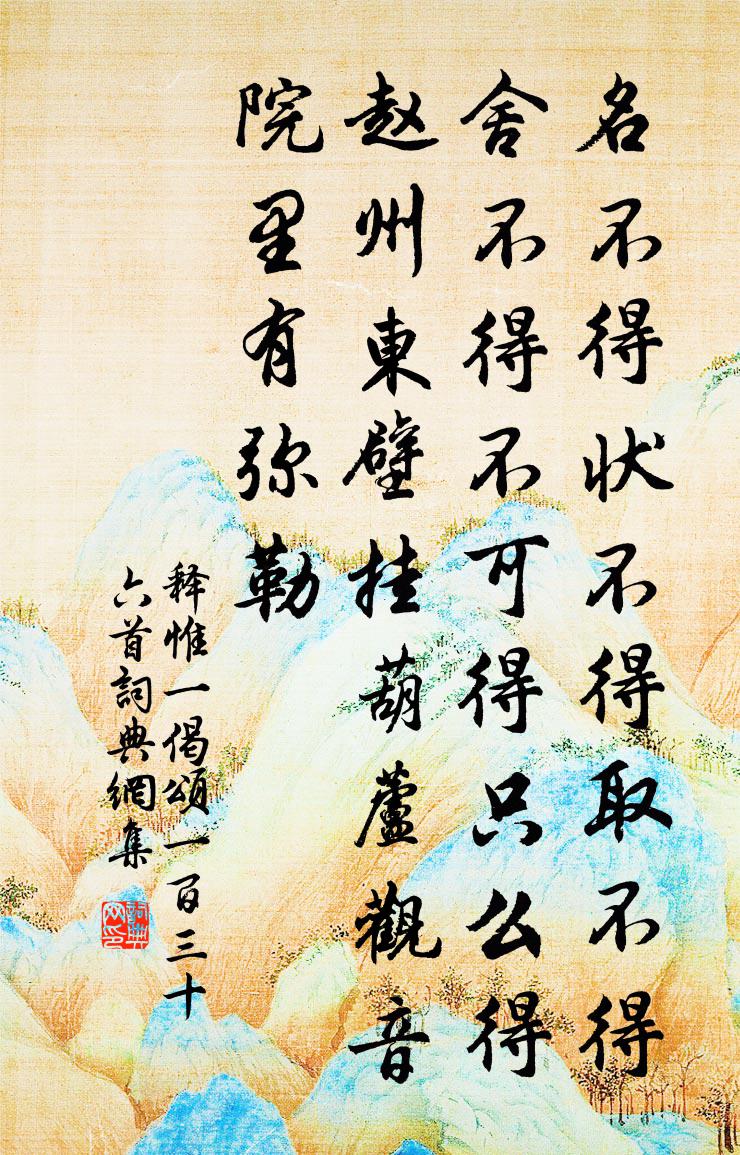 名不得状不得取不得
舍不得不可得只么得
赵州東壁挂葫蘆觀音
院里有弥勒
释惟一偈頌一百三十
六首詞典網集
詞典
网印